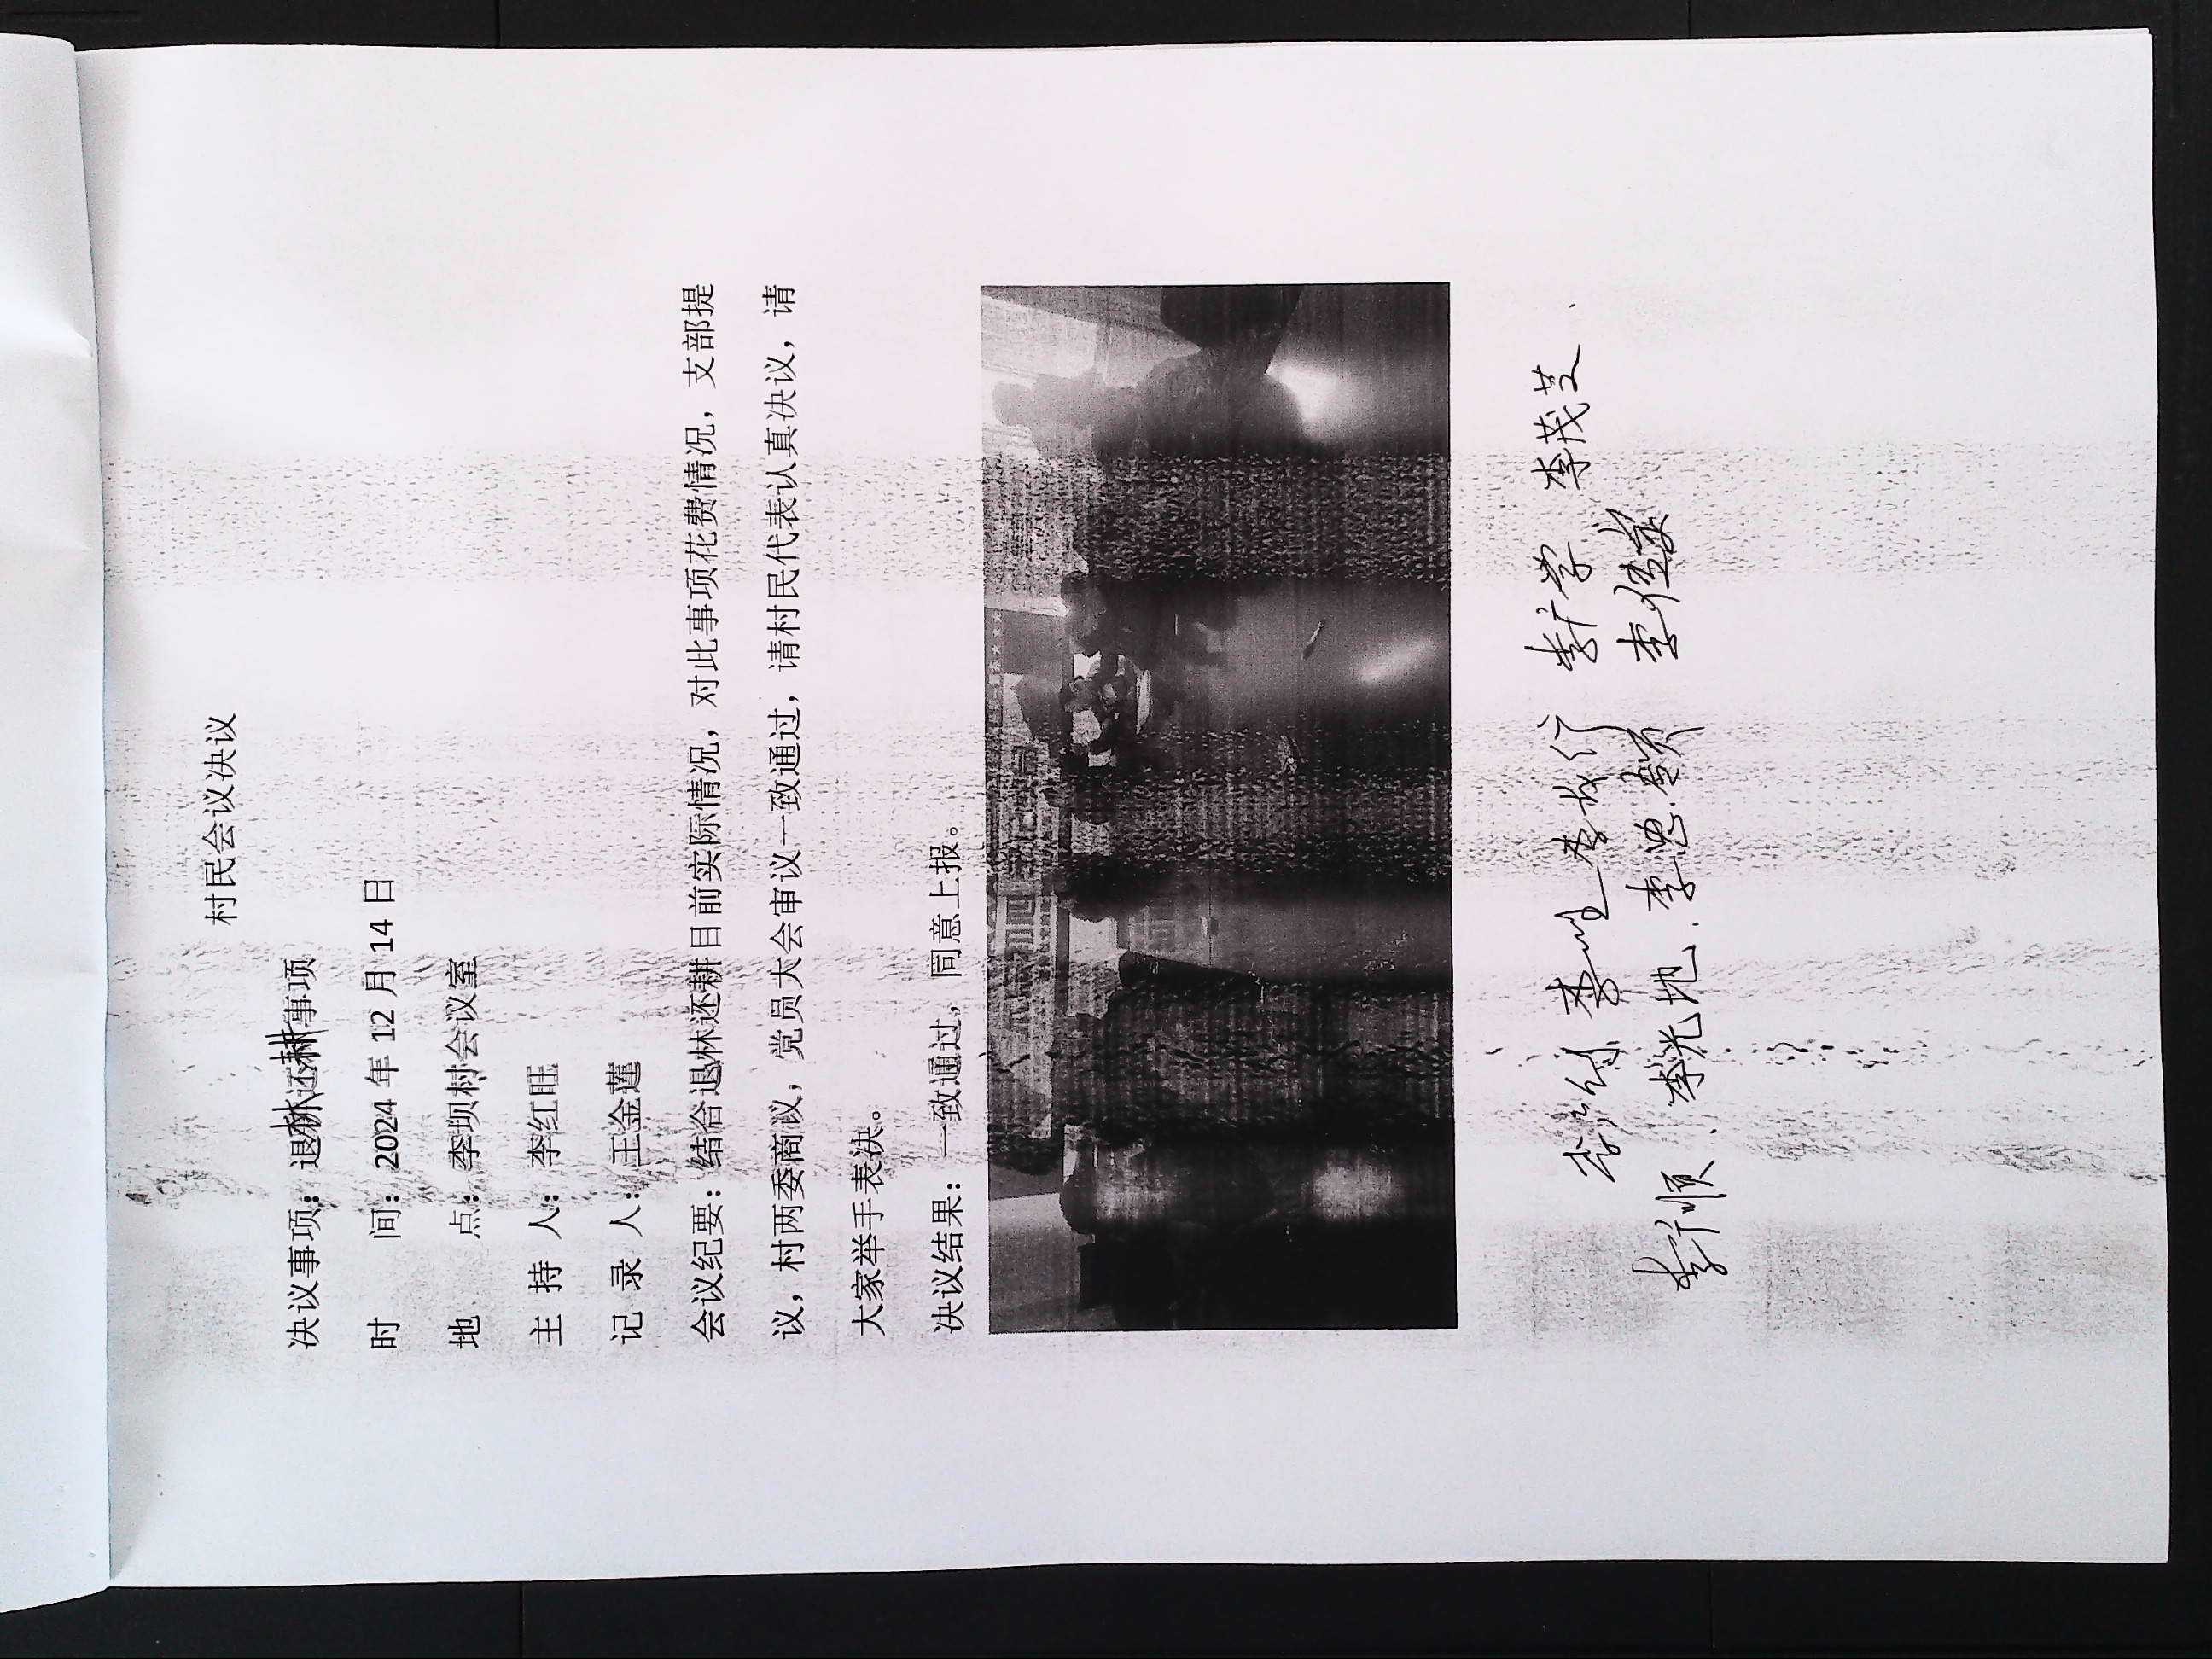 村民会议决议
决议事项：退林还耕事项
时 间：2024年12月14日
地 点：李坝村会议室
主 持 人：李红旺
记 录 人：王金莲
会议纪要：结合退林还耕目前实际情况，对此事项花费情况，支部提
议，村两委商议，党员大会审议一致通过，请村民代表认真决议，请
大家举手表决。
决议结果：一致通过，同意上报。
李广学 李茂芝
李广顺、李光地、李恩贤